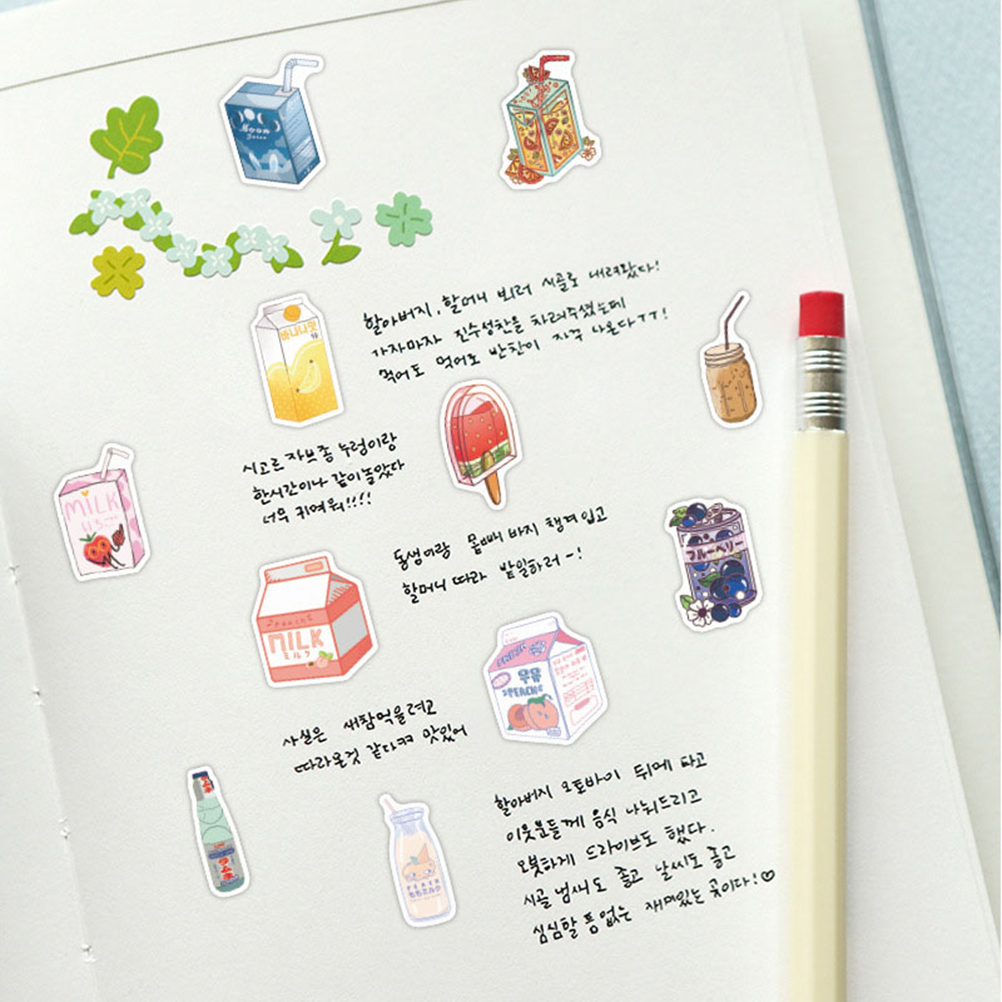 Moon
Juice
할아버지, 할머니 뵈러 시골로 내려왔다!
가자마자 진수성찬을 차려주셨는데
먹어도 먹어도 반찬이 자꾸 나온다ㅜㅜ!
바나나맛
시고르자브종 누렁이랑
한시간이나 같이놀았다
너무 귀여워!!!!
MILK
동생이랑 몸빼바지 챙겨입고
할머니 따라 밭일하러~!
ブルーベリー
MILK
ミルク
우유
PEACH
사실은 새참먹을려고
따라온것 같다ㅋㅋ 맛있어
할아버지 오토바이 뒤에 타고
이웃분들께 음식 나눠드리고
오붓하게 드라이브도 했다.
시골 냄새도 좋고 날씨도 좋고
심심할 틈 없는 재미있는 곳이다!♡
ラムネ
PEACH
ももミルク